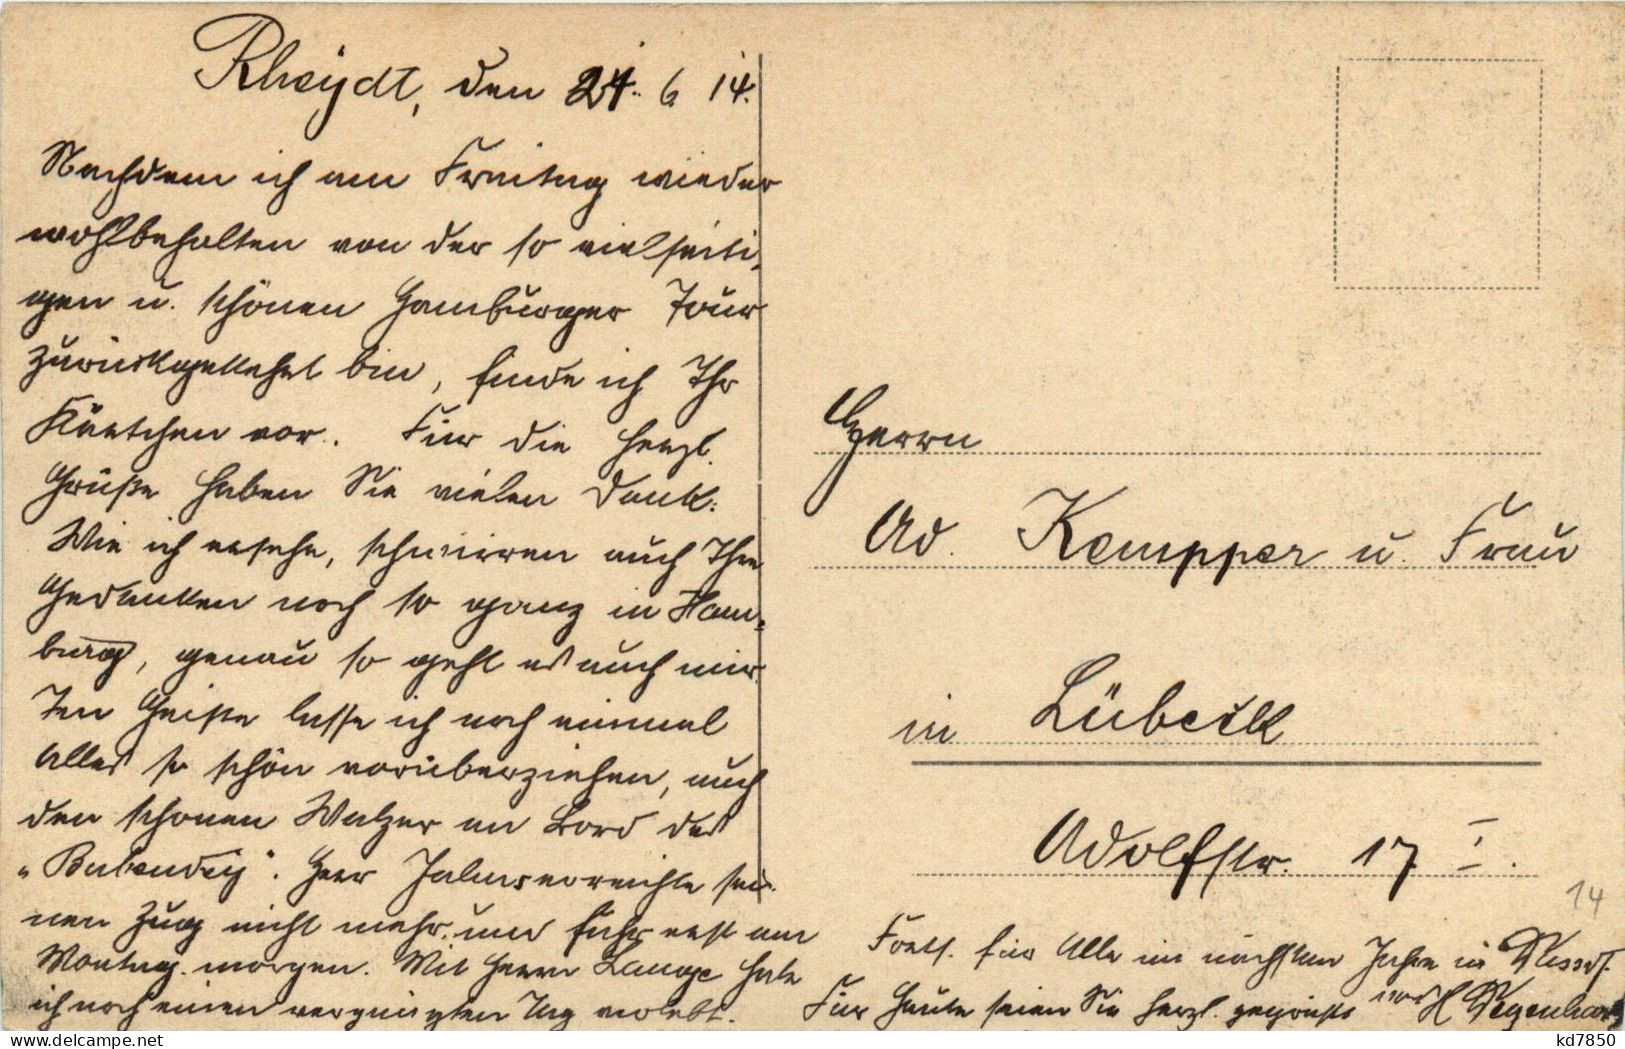 Rheydt, den 24. 6. 14.
Nachdem ich am Freitag wieder
wohlbehalten von der so vielseiti-
gen u. schönen Hamburger Tour
zurückgekehrt bin, finde ich Ihr
Kärtchen vor. Für die herzl.
Grüße haben Sie vielen Dank.
Wie ich ersehe, schwirren auch Ihre
Gedanken noch so ganz in Ham-
burg, genau so geht es auch mir
Im Geiste lasse ich noch einmal
Alles so schön vorüberziehen, auch
den schönen Walzer an Bord des
"Bubendey". Herr erreichte sei-
nen Zug nicht mehr und fuhr erst am
Montag morgen. Mit Herrn Lange habe
ich noch einen vergnügten Tag verlebt.
Herrn
Ad. Kempper u. Frau
in Lübeck
Adolfstr. 17 I.
14
Forts. für Alle im nächsten Jahre in
Für heute seien Sie herzl. gegrüßt von H
kd7850